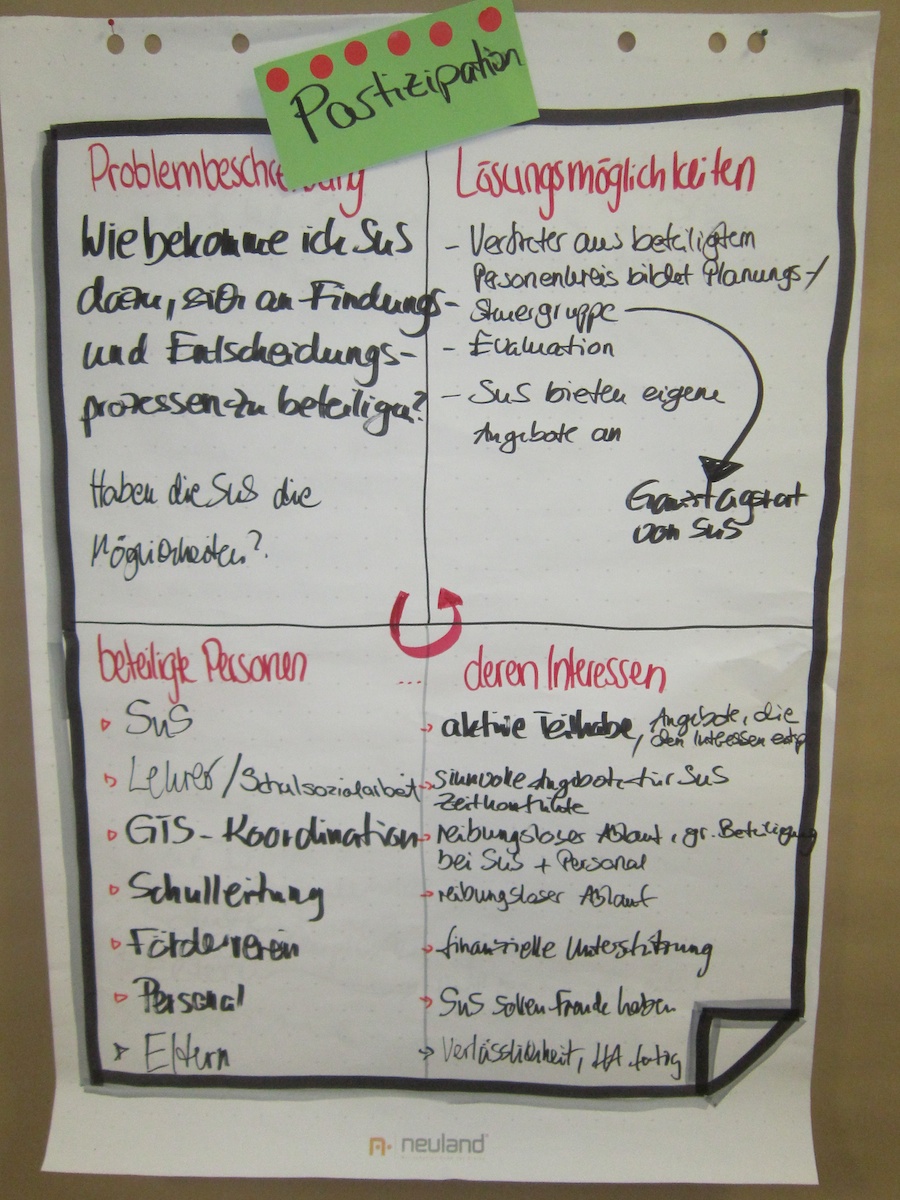 Partizipation
Problembeschreibung
Wie bekomme ich SuS
dazu, sich an Findungs-
und Entscheidungs-
prozessen zu beteiligen?
Haben die SuS die
Möglichkeiten?
Lösungsmöglichkeiten
- Vertreter aus beteiligtem
Personenkreis bildet Planungs-/
- Steuergruppe
- Evaluation
- SuS bieten eigene
Angebote an
Ganztagsrat
von SuS
beteiligte Personen
SuS
Lehrer / Schulsozialarbeit
GTS-Koordination
Schulleitung
Förderverein
Personal
Eltern
... deren Interessen
aktive Teilhabe, Angebote, die
den Interessen entsp
sinnvolle Angebote für SuS
reibungsloser Ablauf, gr. Beteiligung
bei SuS + Personal
reibungsloser Ablauf
finanzielle Unterstützung
SuS sollen Freude haben
Verlässlichkeit, HA fertig
neuland